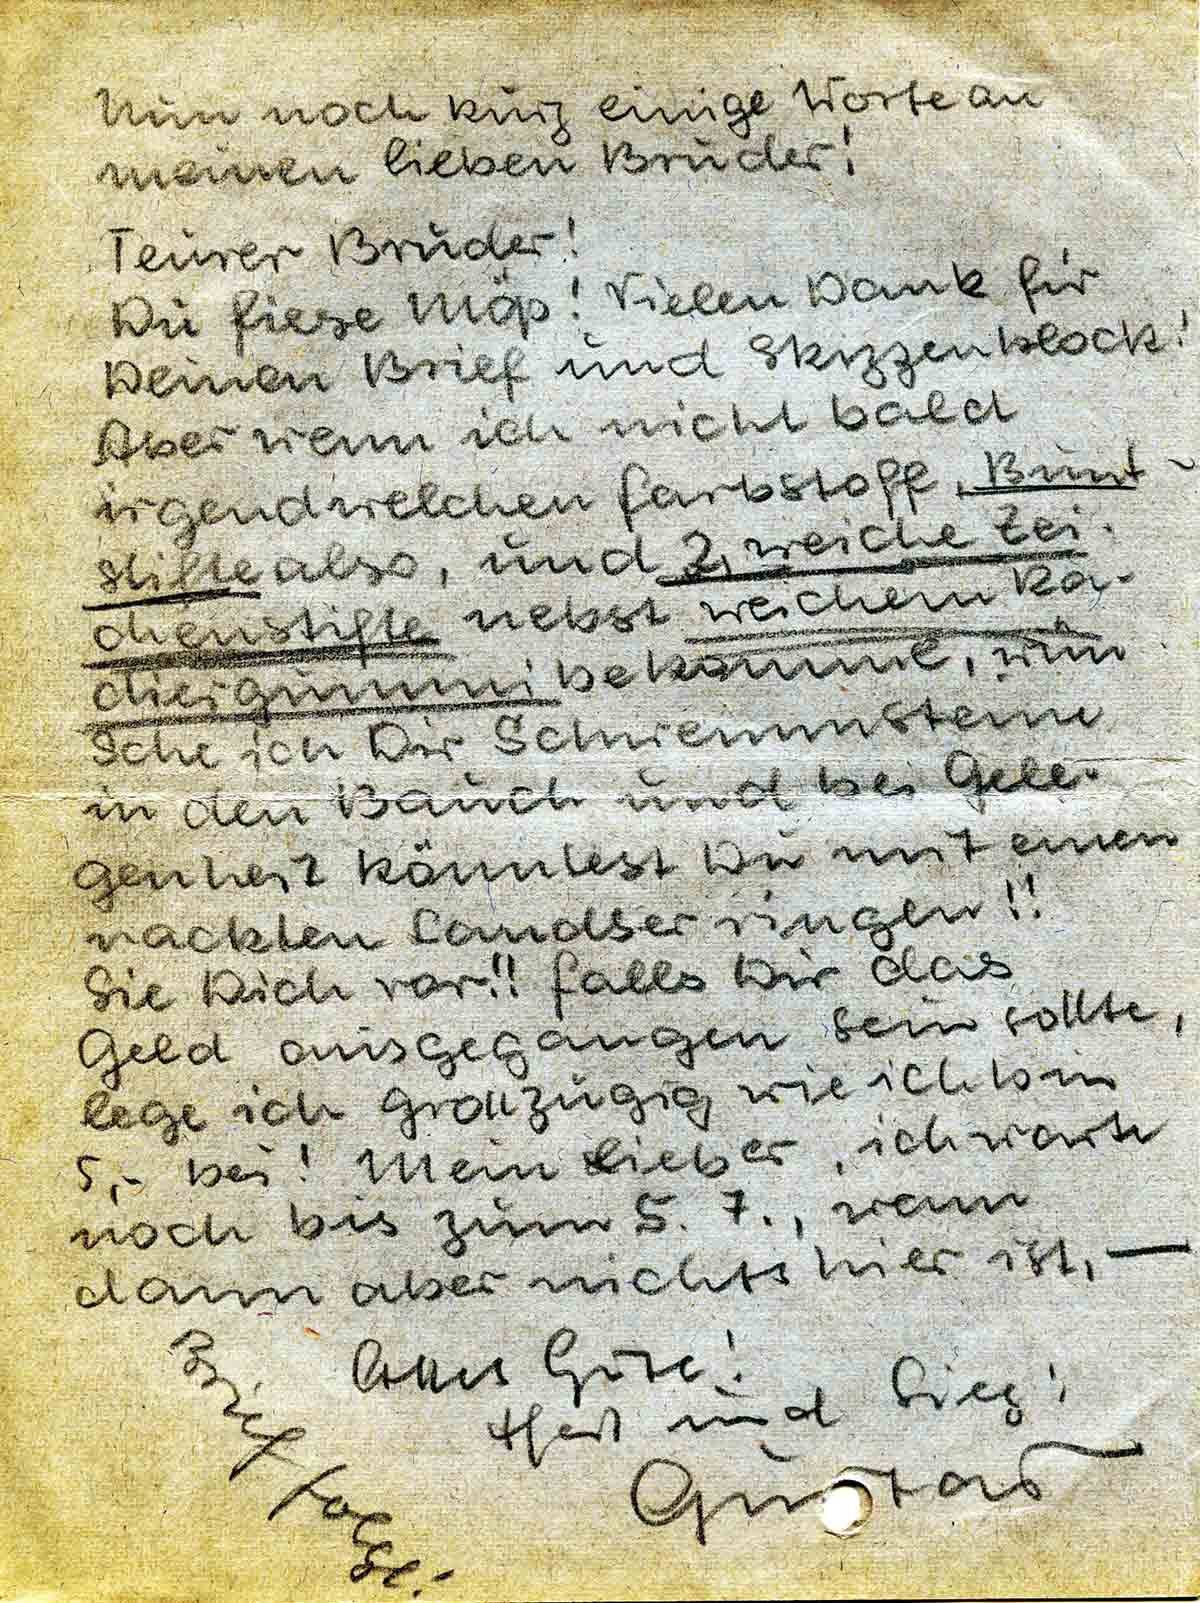 Nun noch kurz einige Worte an
meinen lieben Bruder!
Teurer Bruder!
Du fiese Möp! Vielen Dank für
Deinen Brief und Skizzenblock!
Aber wenn ich nicht bald
irgendwelchen Farbstoff, Bunt-
stifte also, und 2 weiche Zei-
chenstifte nebst weichem Ra-
diergummi bekomme, wün
sche ich Dir Schwemmsteine
in den Bauch und bei Gele-
genheit könntest Du mit einem
nackten Landser ringen!!
Sie Dich vor!! Falls Dir das
Geld ausgegangen sein sollte,
lege ich großzügig wie ich bin
5,- bei! Mein Lieber, ich warte
noch bis zum 5. 7., wenn
dann aber nichts hier ist, —
Alles Gute!
Heil und Sieg!
Gustav
Brief folgt.-